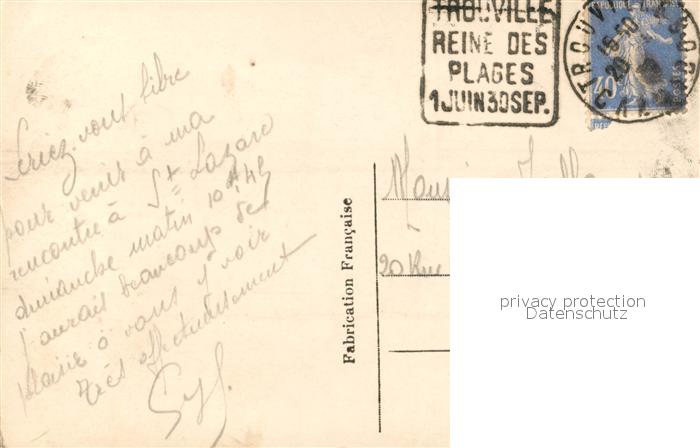 TROUVILLE
REINE DES
PLAGES
1 JUIN 30 SEP.
TROUV
15-10
20
40
Seriez-vous libre
pour venir à ma
rencontre à St Lazare
dimanche matin 10h42
j'aurais beaucoup de
plaisir à vous y voir
très affectueusement
Fabrication Française
Monsieur
20 Rue
privacy protection
Datenschutz